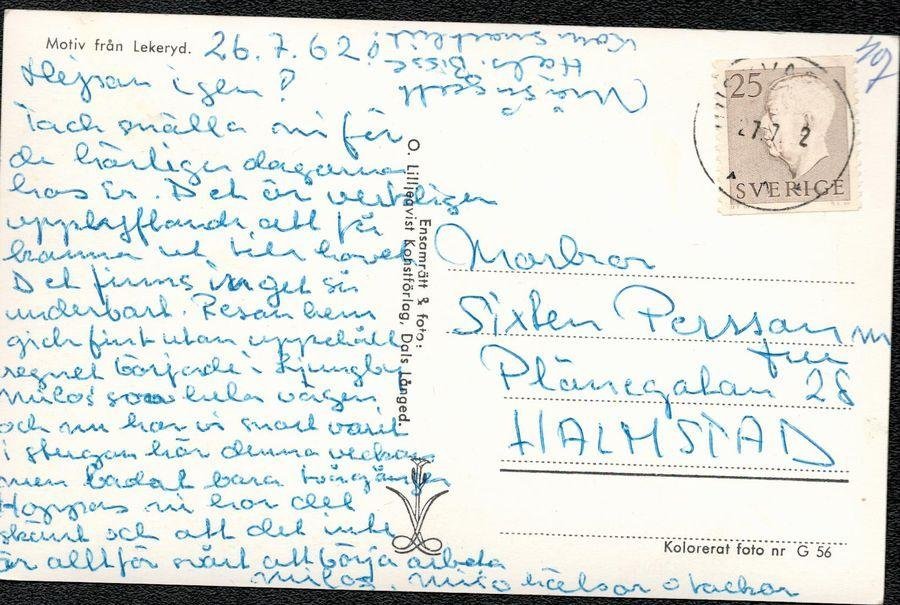 Motiv från Lekeryd.
26.7.62
Hejsan igen!
Tack snälla ni för
de härliga dagarna
hos Er. Det är verkligen
upplyftande att få
komma ut till havet
Det finns inget så
underbart. Resan hem
gick fint utan uppehåll
regnet började i Ljungby
Milos sov hela vägen
och nu har vi snart varit
i stugan här denna veckan
men badat bara två gånger
Hoppas ni har det
skönt och att det inte
är alltför svårt att börja arbeta
Milos, Mito hälsar o tackar
Kom snart hit!
Häls. Bisse
O. Lilljeqvist Konstförlag, Dals Långed.
Ensamrätt & foto:
25
27.7. 2
SVERIGE
107
Morbror
Sixten Persson m
fru
Plånegatan 28
HALMSTAD
Kolorerat foto nr G 56